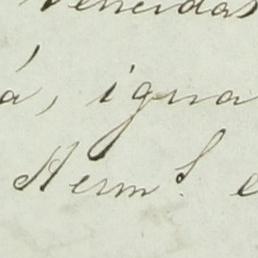 vencidas
á, igua
Herm.s e